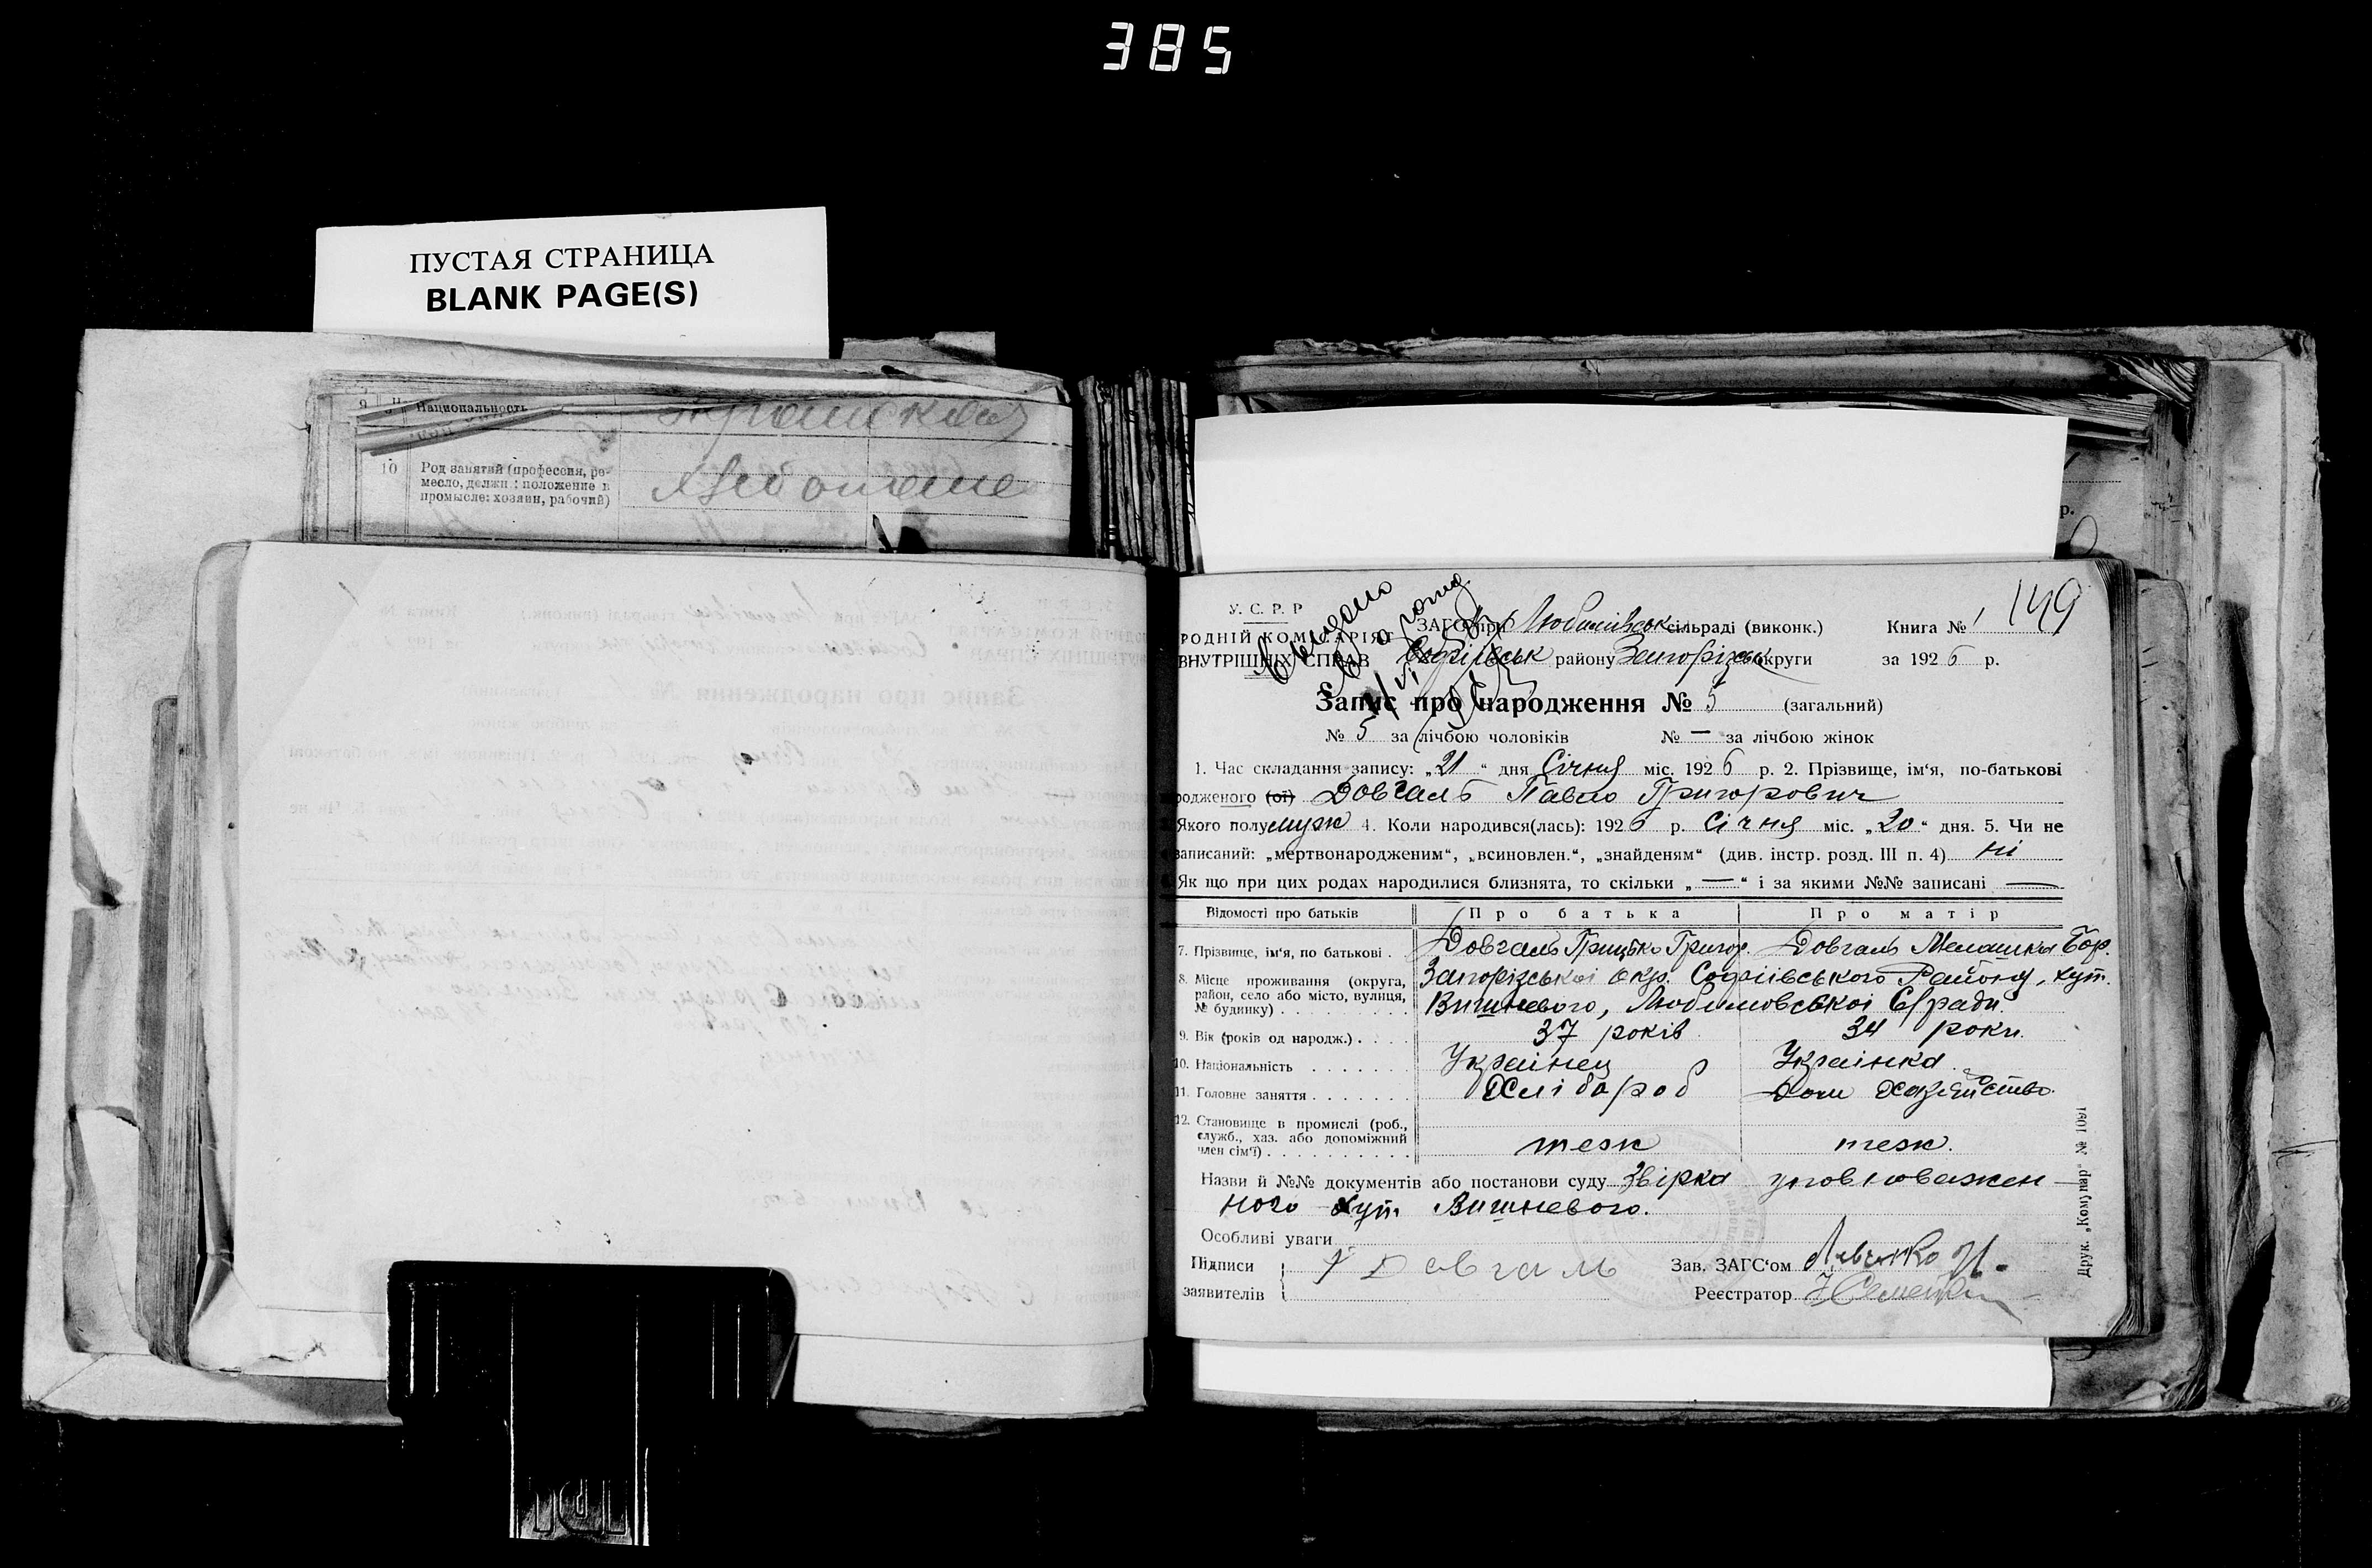 385
ПУСТАЯ СТРАНИЦА
BLANK PAGE(S)
9 Национальность
10 Род занятий (профессия, ре-
месло, должн.: положение в
промысле: хозяин, рабочий)
У. С. Р. Р
РОДНІЙ КОМІСАРІЯТ
ВНУТРІШНІХ СПРАВ
ЗАГС при Любимівськ сільраді (виконк.) Книга № 1 149
Софіївськ району Запорізськ округи за 1926 р.
Запис про народження № 5 (загальний)
№ 5 за лічбою чоловіків № — за лічбою жінок
1. Час складання запису: „21“ дня Січня міс. 1926 р. 2. Прізвище, ім‘я, по-батькові
родженого (ої) Довгаль Павло Григорович
Якого полу муж 4. Коли народився(лась): 1926 р. Січня міс. „20“ дня. 5. Чи не
записаний: „мертвонародженим“, „всиновлен.“, „знайденям“ (див. інстр. розд. III п. 4) ні
Як що при цих родах народилися близнята, то скільки „—“ і за якими №№ записані —
Відомості про батьків Про батька Про матір
7. Прізвище, ім‘я, по батькові . Довгаль Грицько Григор. Довгаль Мелашка Бор.
8. Місце проживання (округа,
район, село або місто, вулиця,
№ будинку) . . . . . . . . .
Запорізської окр. Софіївського Району, хут.
Вишневого, Любимовської С/ради
9. Вік (років од народж.) . . . . 37 років 34 роки.
10. Національність . . . . . . . Українец Українка
11. Головне заняття . . . . . . . Хлібороб Дом Хазяйство.
12. Становище в промислі (роб.,
служб., хаз. або допоміжний
член сім‘ї) . . . . . . . . . . теж теж.
Назви й №№ документів або постанови суду Звірка уповноважен—
ного хут Вишневого.
Особливі уваги
Підписи
заявителів
Довгаль
Зав. ЗАГС‘ом Левченко
Реєстратор
Друк. „Комунар“ № 1091